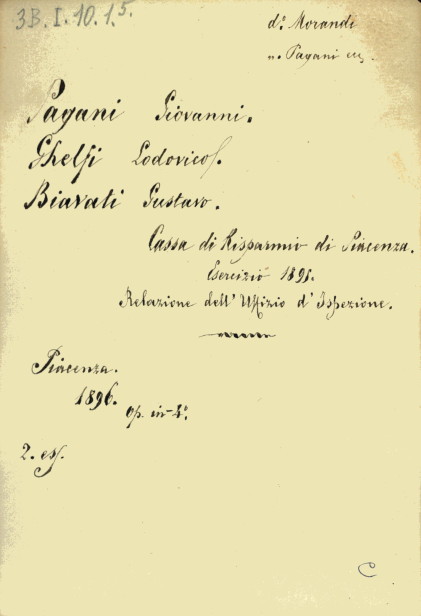 3B. I. 10. 1. 5.
d.° Morandi
n. Pagani
Pagani Giovanni.
Ghelfi Lodovico.
Biavati Gustavo.
Cassa di Risparmio di Piacenza.
Esercizio 1895.
Relazione dell' Uffizio d' Ispezione.
Piacenza.
1896.
op. in-8.°
2. es.
C